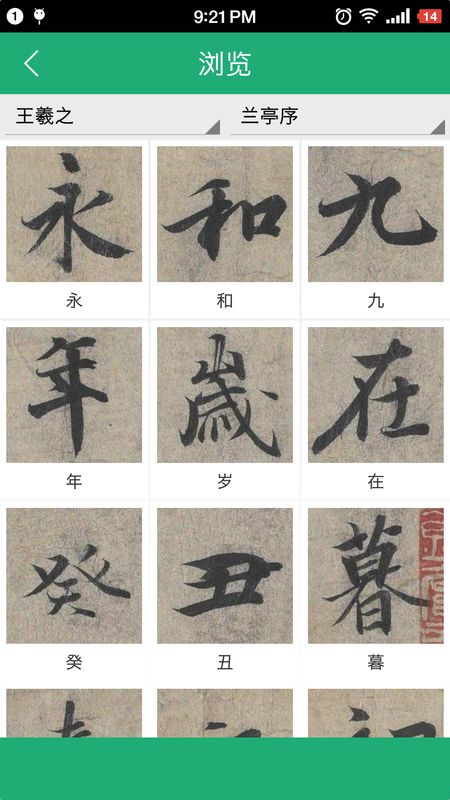 1
9:21 PM
14
浏览
王羲之
兰亭序
永 和 九
永 和 九
年 歲 在
年 岁 在
癸 丑 暮
癸 丑 暮